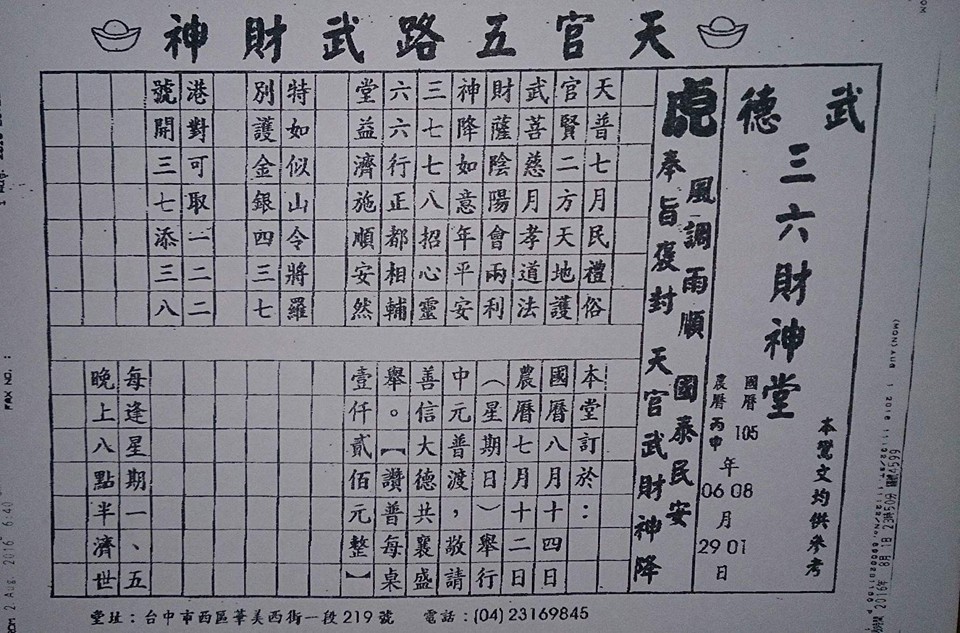 天官五路武財神
武德
三六財神堂
本鸞文均供參考
國曆 105 年 08 月 01 日
農曆 丙申 06 29
風調雨順 國泰民安
虎
奉旨褒封 天官武財神降
天普七月民禮俗
官賢二方天地護
武菩慈月孝道法
財薩陰陽會兩利
神降如意年平安
三七七八招心靈
六六行正都相輔
堂益濟施順安然
特如似山令將羅
別護金銀四三七
港對可取一二二
號開三七添三八
本堂訂於：
國曆八月十四日
農曆七月十二日
（星期日）舉行
中元普渡，敬請
善信大德共襄盛
舉。【讚普每桌
壹仟貳佰元整】
每逢星期一、五
晚上八點半濟世
堂址：台中市西區華美西街一段219號 電話：(04)23169845
(MON) AUG 1 2016
2016年 8月 1日 23時50分
FAX NO. :
2 Aug. 2016 6:40